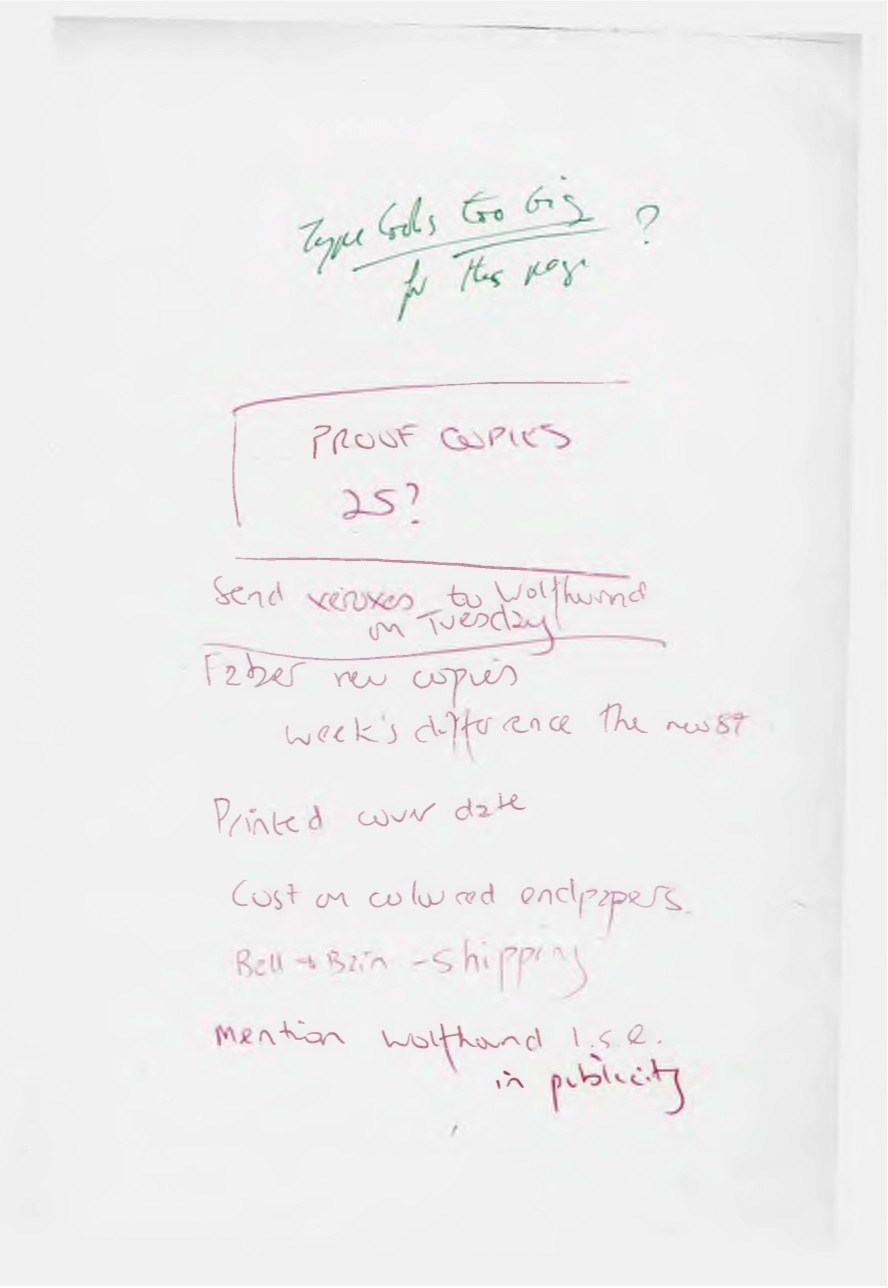 Type looks too big ?
for this page
PROOF COPIES
25?
Send xeroxes to Wolfhound
on Tuesday
Faber new copies
week's difference the most
Printed cover date
Cost on coloured endpapers.
Bell + Bain - shipping
Mention Wolfhound l.s.e.
in publicity